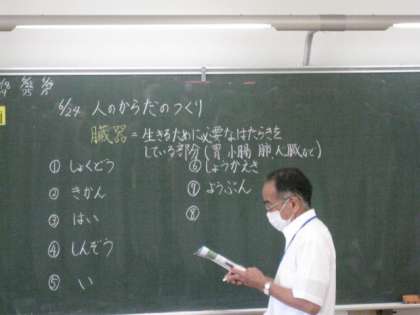 6/24 人のからだのつくり
臓器 = 生きるために必要なはたらきを
している部分(胃 小腸 肺 心臓など)
① しょくどう
② きかん
③ はい
④ しんぞう
⑤ い
⑥ しょうかえき
⑦ ようぶん
⑧